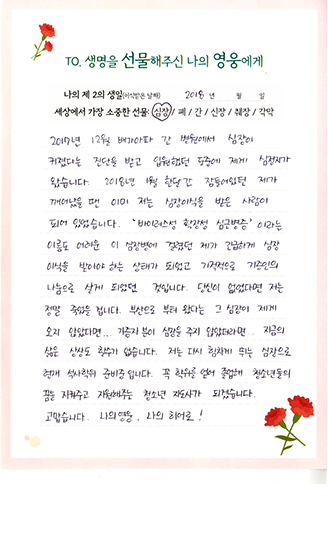 TO. 생명을 선물해주신 나의 영웅에게
나의 제 2의 생일(이식받은 날짜) 2018 년 월 일
세상에서 가장 소중한 선물: 심장 / 폐 / 간 / 신장 / 췌장 / 각막
2017년 12월 배가아파 간 병원에서 심장이
커졌다는 진단을 받고 입원했던 도중에 제게 심정지가
왔습니다. 2018년 1월 한달간 잠들어있던 제가
깨어났을 땐 이미 저는 심장이식을 받은 사람이
되어 있었습니다. '바이러스성 확장성 심근병증' 이라는
이름도 어려운 이 심장병에 걸렸던 제가 긴급하게 심장
이식을 받아야 하는 상태가 되었고 기적적으로 기증인의
나눔으로 살게 되었던 것입니다. 당신이 없었다면 저는
정말 죽었을 겁니다. 부산으로 부터 왔다는 그 심장이 제게
오지 않았다면... 기증자 분이 심장을 주지 않았더라면... 지금의
삶은 상상도 할수가 없습니다. 저는 다시 힘차게 뛰는 심장으로
현재 석사학위 준비중 입니다. 꼭 학위를 얻어 졸업해 청소년들의
꿈을 지켜주고 지원해주는 청소년 지도사가 되겠습니다.
고맙습니다. 나의 영웅, 나의 히어로!